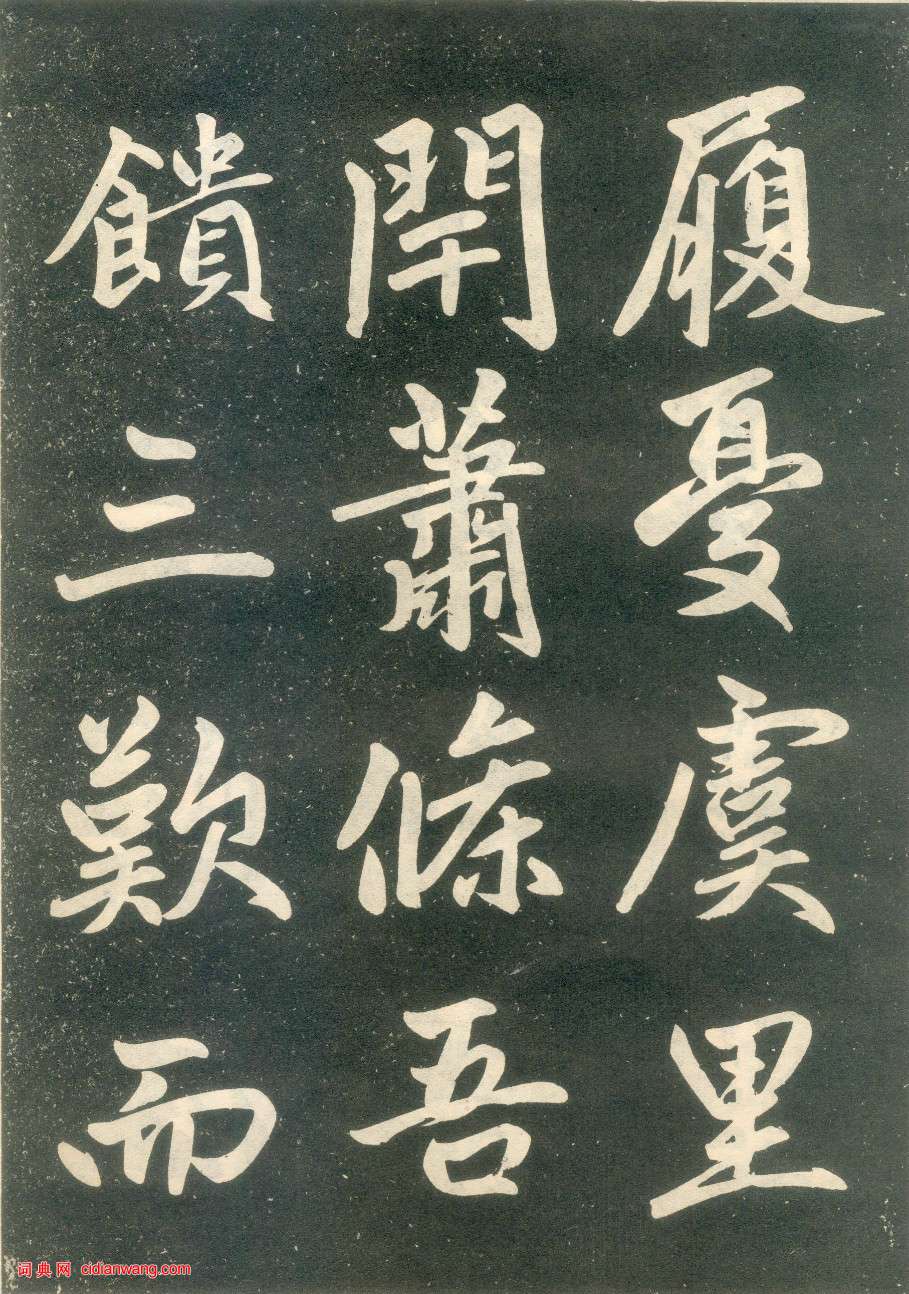 履憂虞里
閈蕭條吾
饋三歎而
词典网 cidianwang.com